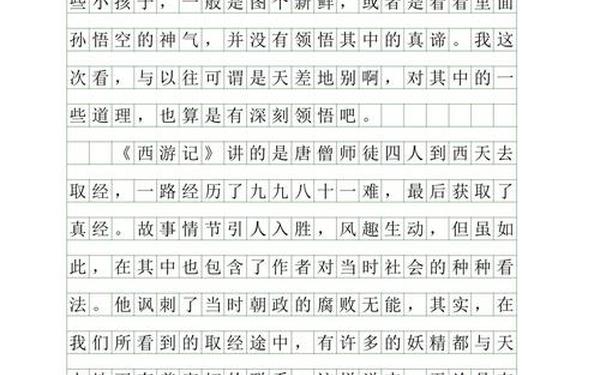 些小孩子，一般是图个新鲜，或者是看看里面
孙悟空的神气，并没有领悟其中的真谛。我这
次看，与以往可谓是天差地别啊，对其中的一
些道理，也算是有深刻领悟吧。
《西游记》讲的是唐僧师徒四人到西天去
取经，一路经历了九九八十一难，最后获取了
真经。故事情节引人入胜，风趣生动，但虽如
此，在其中也包含了作者对当时社会的种种看
法。他讽刺了当时朝政的腐败无能，其实，在
我们所看到的取经途中，有许多的妖精都与天